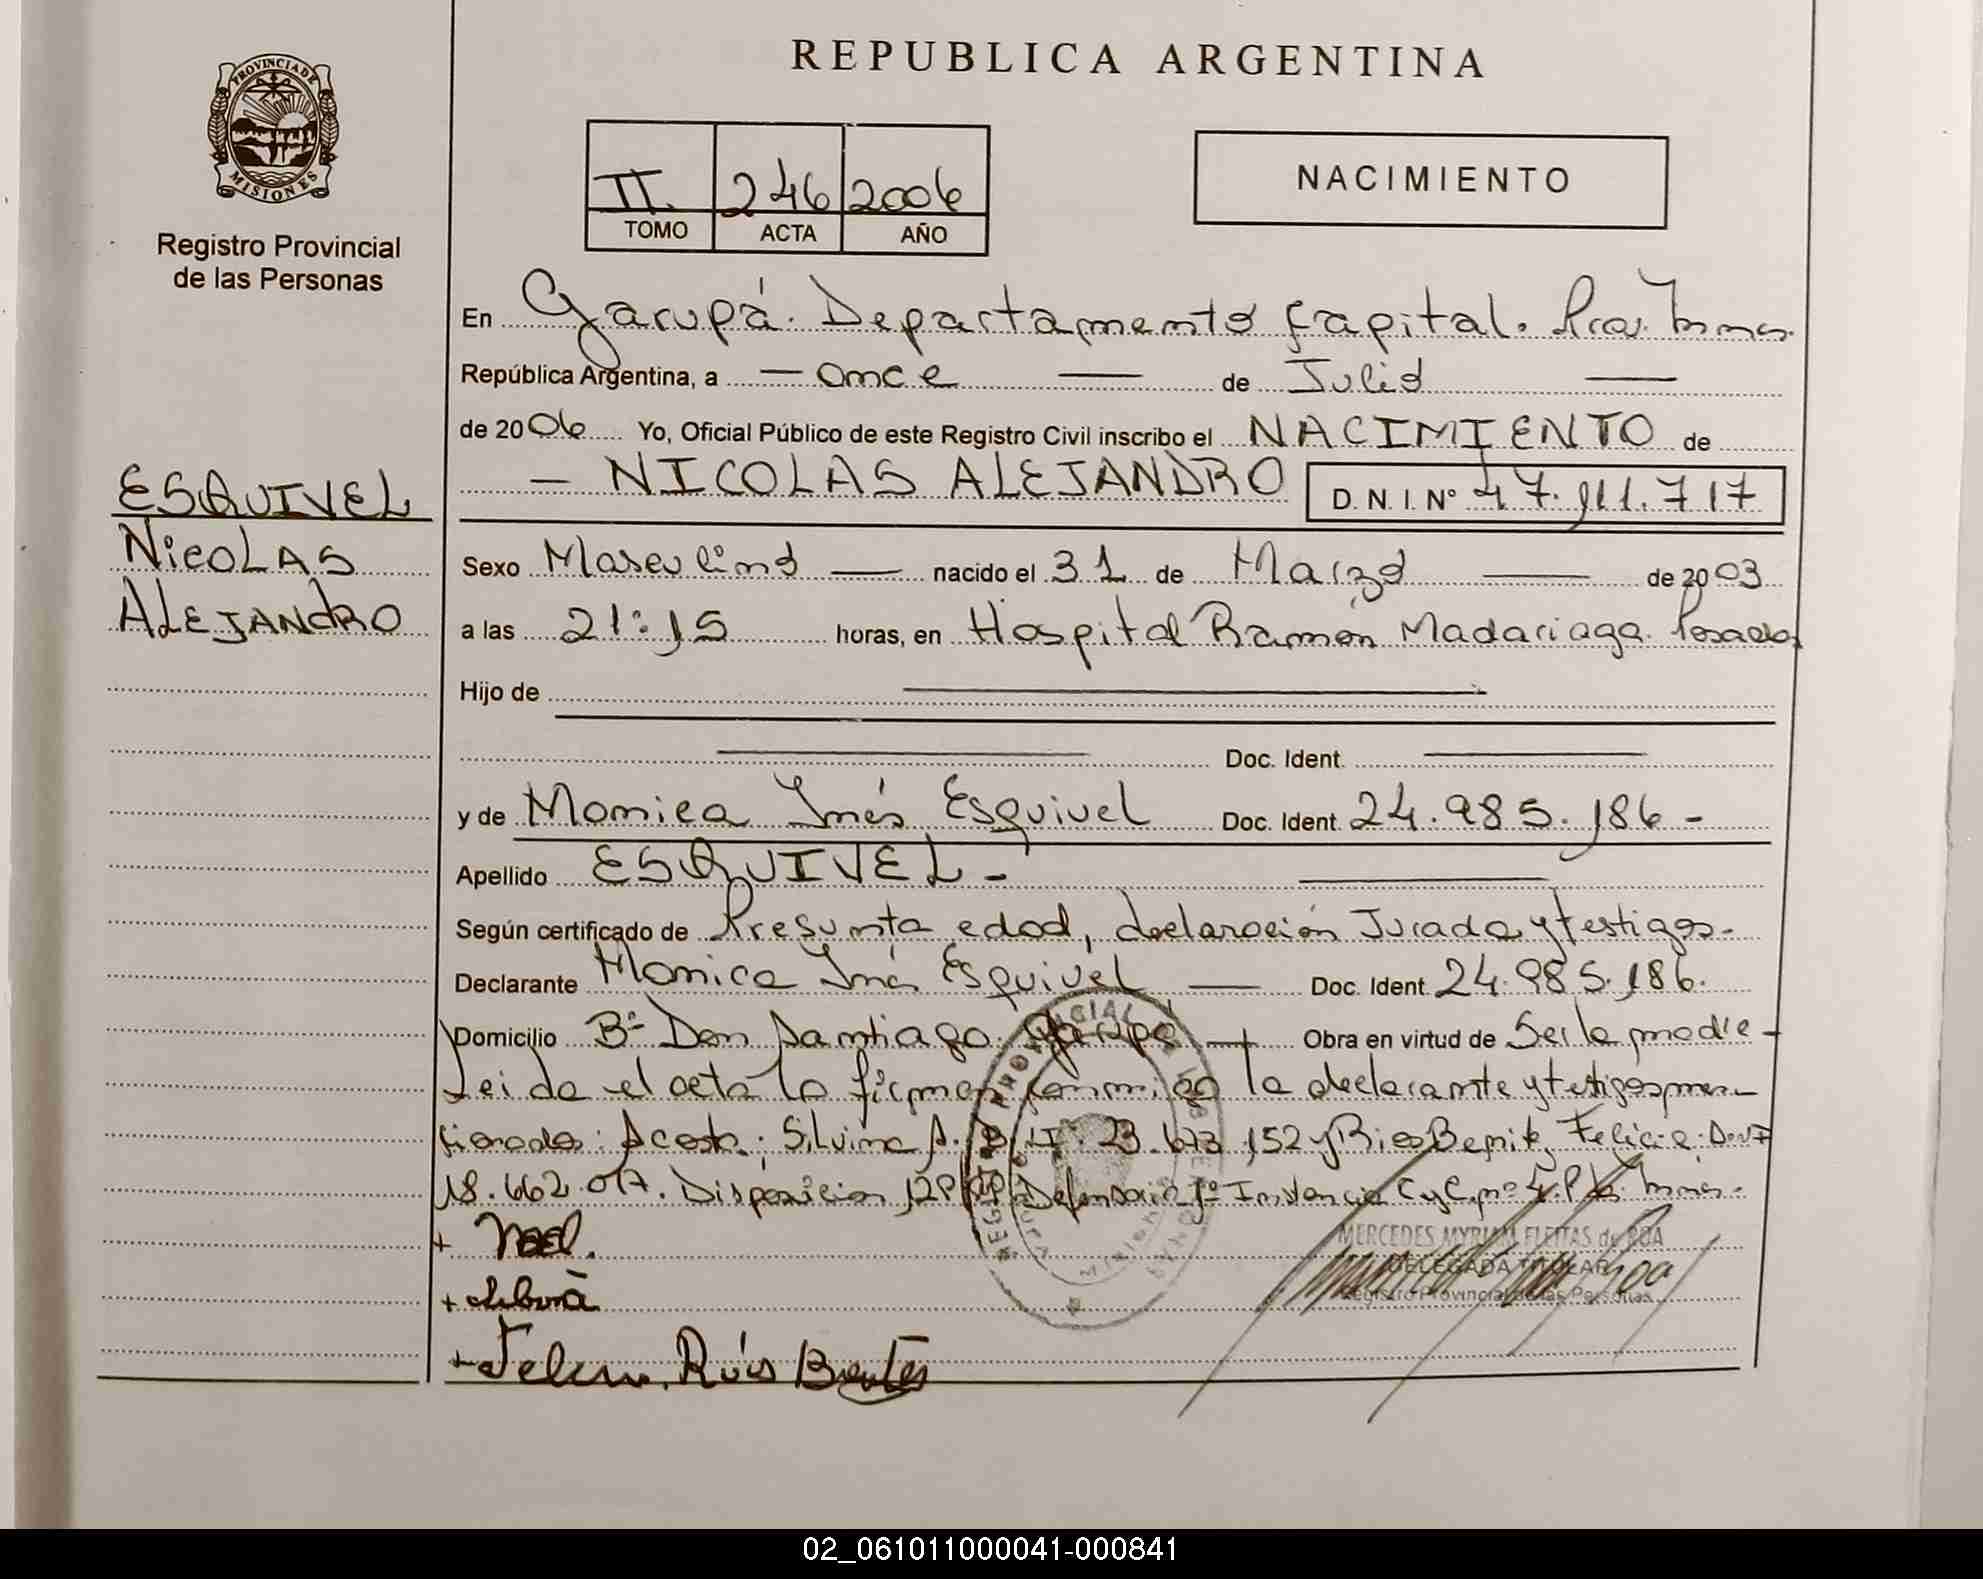 REPUBLICA ARGENTINA
PROVINCIA DE
MISIONES
Registro Provincial
de las Personas
II. 246 2006
TOMO ACTA AÑO
NACIMIENTO
En Garupá. Departamento Capital. Pcia. Mnes.
República Argentina, a — once — de Julio —
de 2006 Yo, Oficial Público de este Registro Civil inscribo el NACIMIENTO de
— NICOLAS ALEJANDRO D. N. I. Nº 47.911.717
ESQUIVEL
NicoLAS
ALEJANdRO
Sexo Masculino — nacido el 31 de Marzo — de 2003
a las 21:15 horas, en Hospital Ramón Madariaga. Posadas
Hijo de
Doc. Ident.
y de Monica Inés Esquivel Doc. Ident. 24.985.186 -
Apellido ESQUIVEL -
Según certificado de Presunta edad, declaración Jurada y testigos.
Declarante Monica Inés Esquivel — Doc. Ident. 24.985.186.
Domicilio Bº Don Santiago. Garupá — Obra en virtud de Ser la madre -
Leida el acta la firman conmigo la declarante y testigos men
cionados: Acosta, Silvina A. 23.673.152 y Rios Benitez Felicia: D.N.I
18.662.017. Disposicion Defensoria 1º Instancia CyC nº 4. Mnes.
+ Noel.
+
+ Ruis
MERCEDES MYRIAM FLEITAS de ROA
DELEGADA TITULAR
Registro Provincial de las Personas
02_061011000041-000841